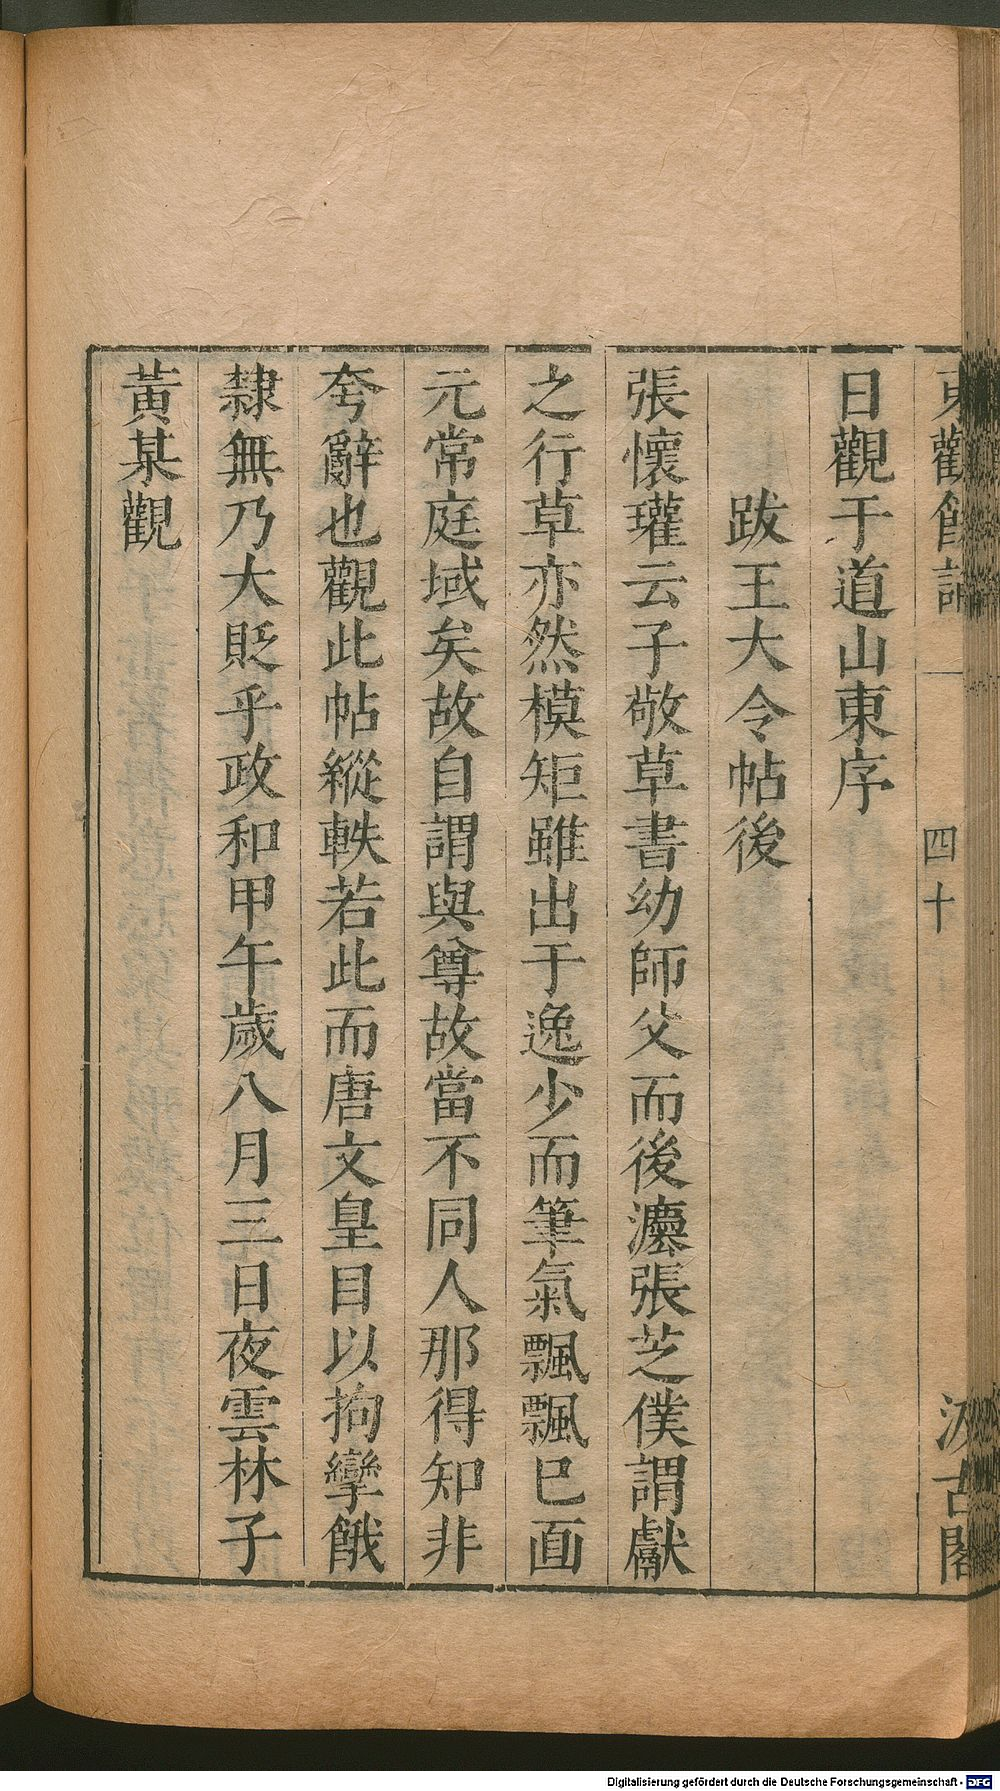 東觀餘論
四十
汲古閣
日觀于道山東序
跋王大令帖後
張懷瓘云子敬草書幼師父而後灋張芝僕謂獻
之行草亦然模矩雖出于逸少而筆氣飄飄已面
元常庭域矣故自謂與尊故當不同人那得知非
夸辭也觀此帖縱軼若此而唐文皇目以拘攣餓
隸無乃大貶乎政和甲午歲八月三日夜雲林子
黃某觀
Digitalisierung gefördert durch die Deutsche Forschungsgemeinschaft - DFG